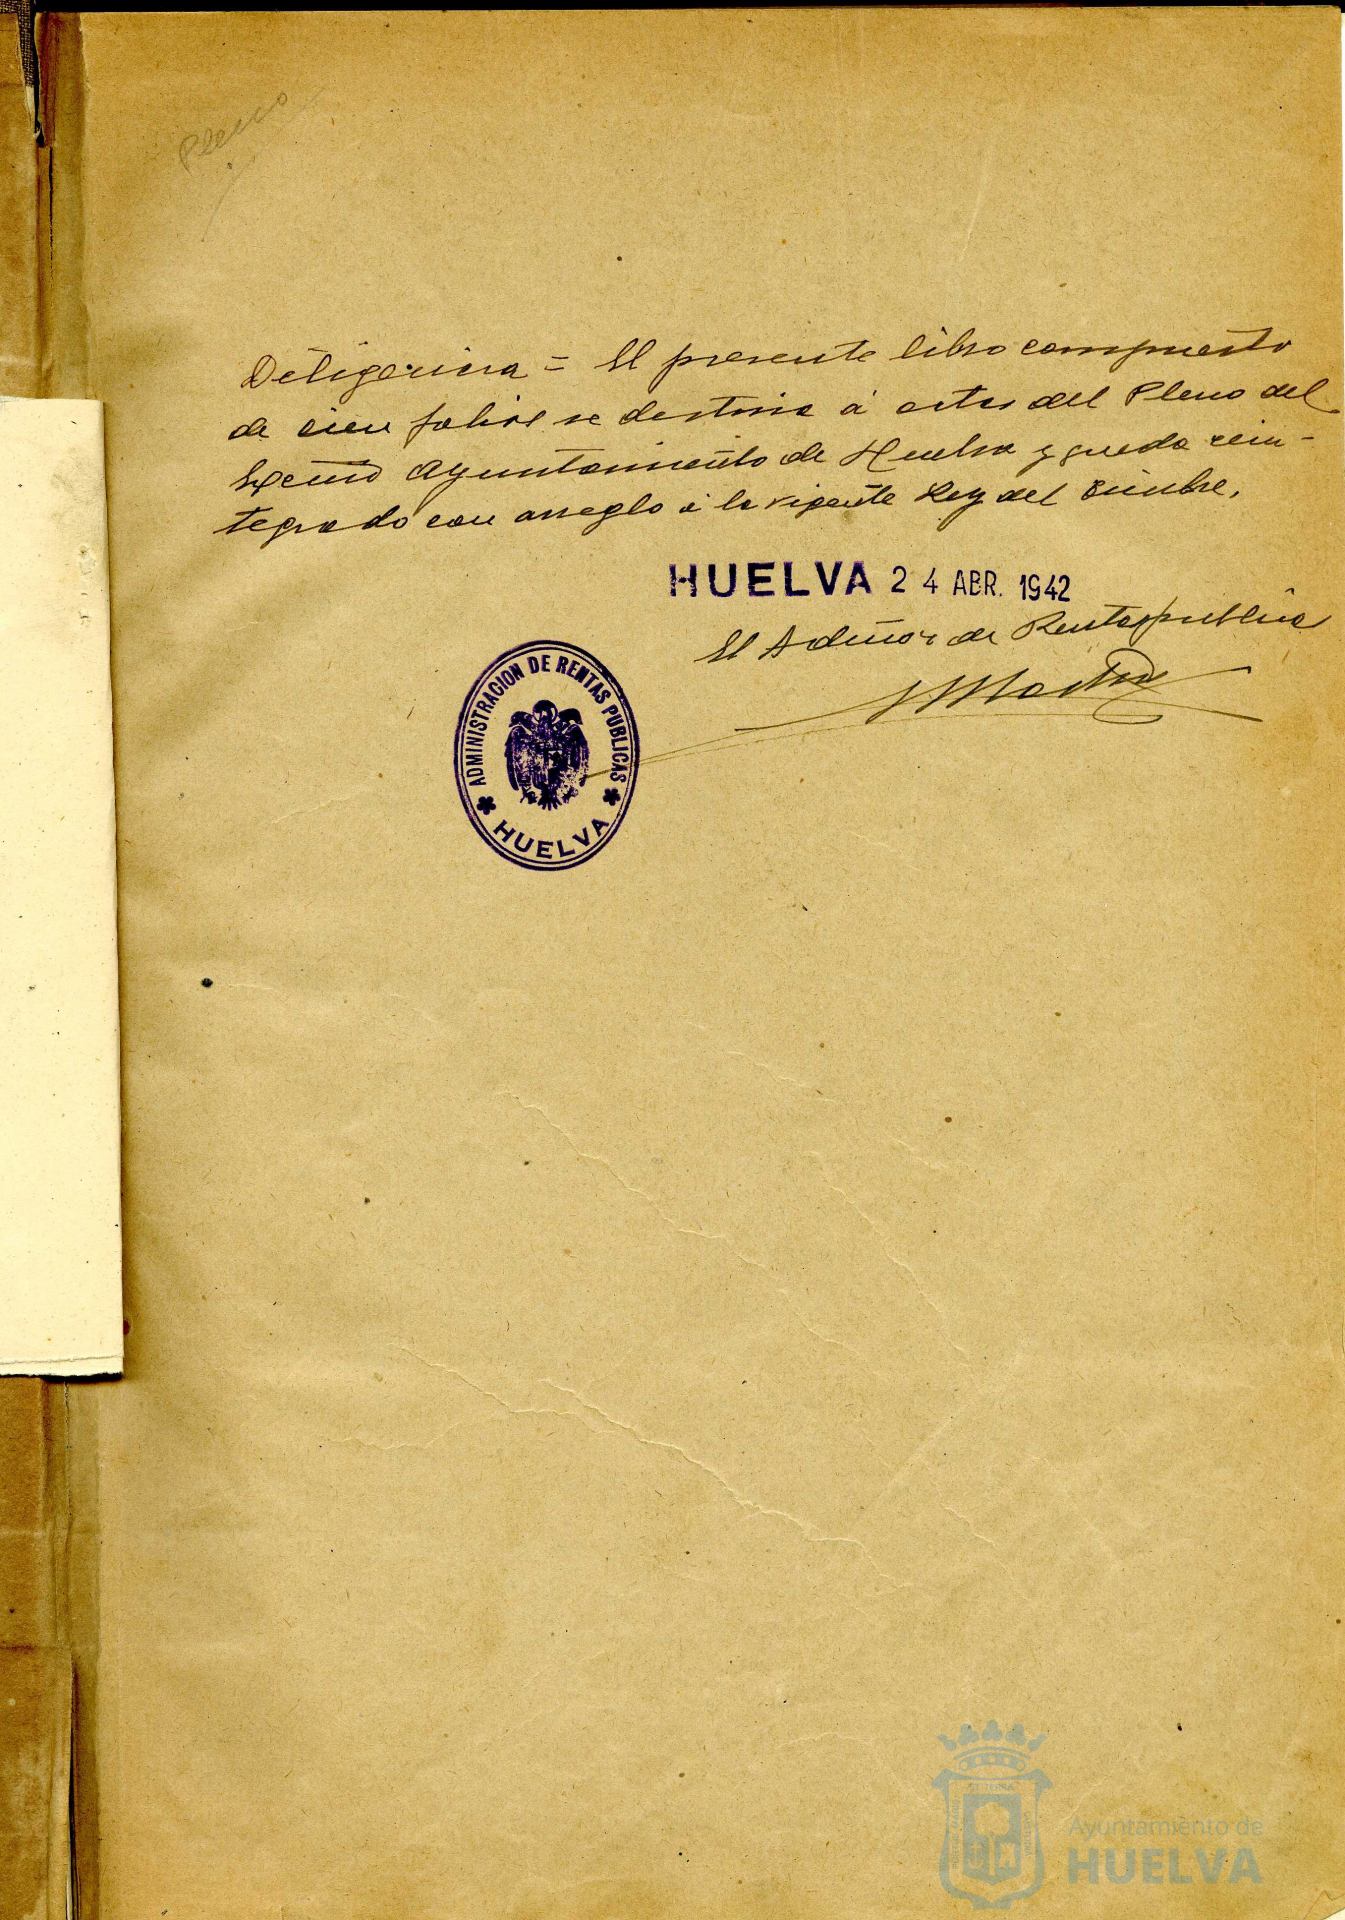 Pleno
Diligencia = El presente libro compuesto
de cien folios se destina á actas del Pleno del
Excmo Ayuntamiento de Huelva y queda rein-
tegrado con arreglo á la vigente Ley del Timbre.
HUELVA 24 ABR. 1942
El Admor de Rentas publicas
ADMINISTRACION DE RENTAS PUBLICAS
HUELVA
Ayuntamiento de
HUELVA